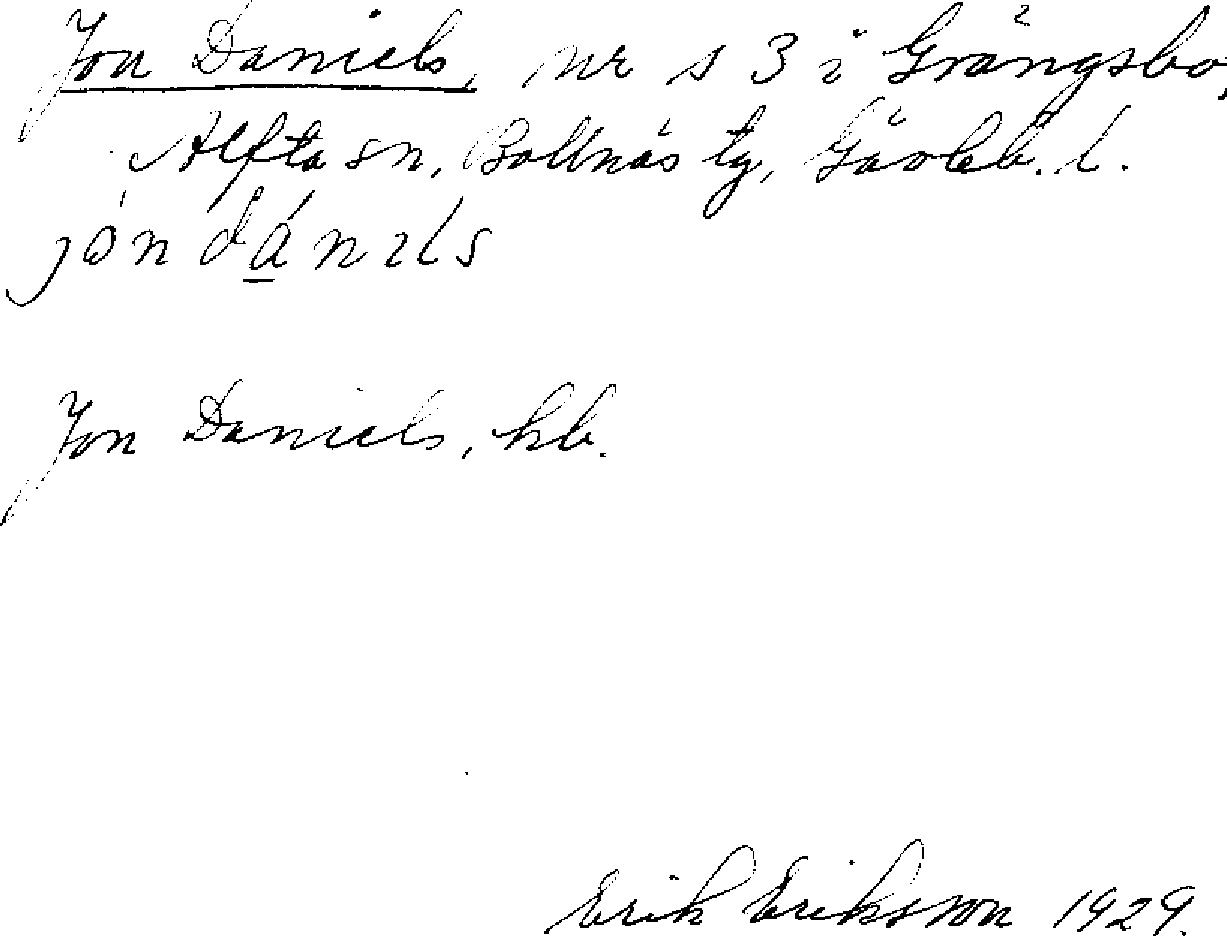 Jon Daniels, nr s 3 i Grängsbo,
Alfta sn, Bollnäs tg, Gävleb. l.
jòn dánıls
Jon Daniels, hb.
Erik Eriksson 1929.